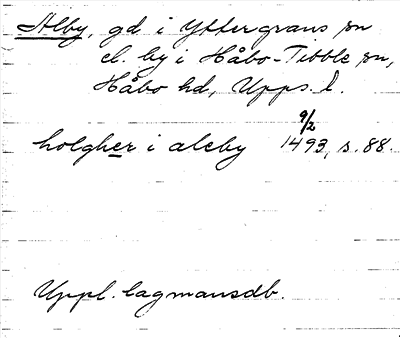 Alby, gd i Yttergrans sn
el. by i Håbo-Tibble sn,
Håbo hd, Upps. l.
holgher i aleby 9/2 1493, s. 88.
Uppl. lagmansdb.